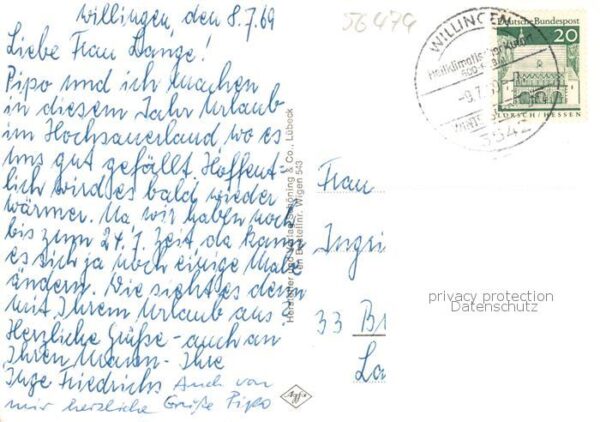 Willingen, den 8.7.69
Liebe Frau Lange!
Pipo und ich machen
in diesem Jahr Urlaub
im Hochsauerland, wo es
uns gut gefällt. Hoffent-
lich wird es bald wieder
wärmer. Na wir haben noch
bis zum 24.7. Zeit, da kann
es sich ja noch einige Male
ändern. Wie sieht es denn
mit Ihrem Urlaub aus
Herzliche Grüße - auch an
Ihren Mann - Ihre
Inge Friedrichs Auch von
mir herzliche Grüße Pipo
56474
WILLINGEN
Heilklimatischer Kurort
3542
Deutsche Bundespost
20
LORSCH / HESSEN
Hersteller und Verlag Schöning & Co., Lübeck
Bestellnr. Wigen 543
Frau
Ingri
33 Br
La
privacy protection
Datenschutz
Agfa